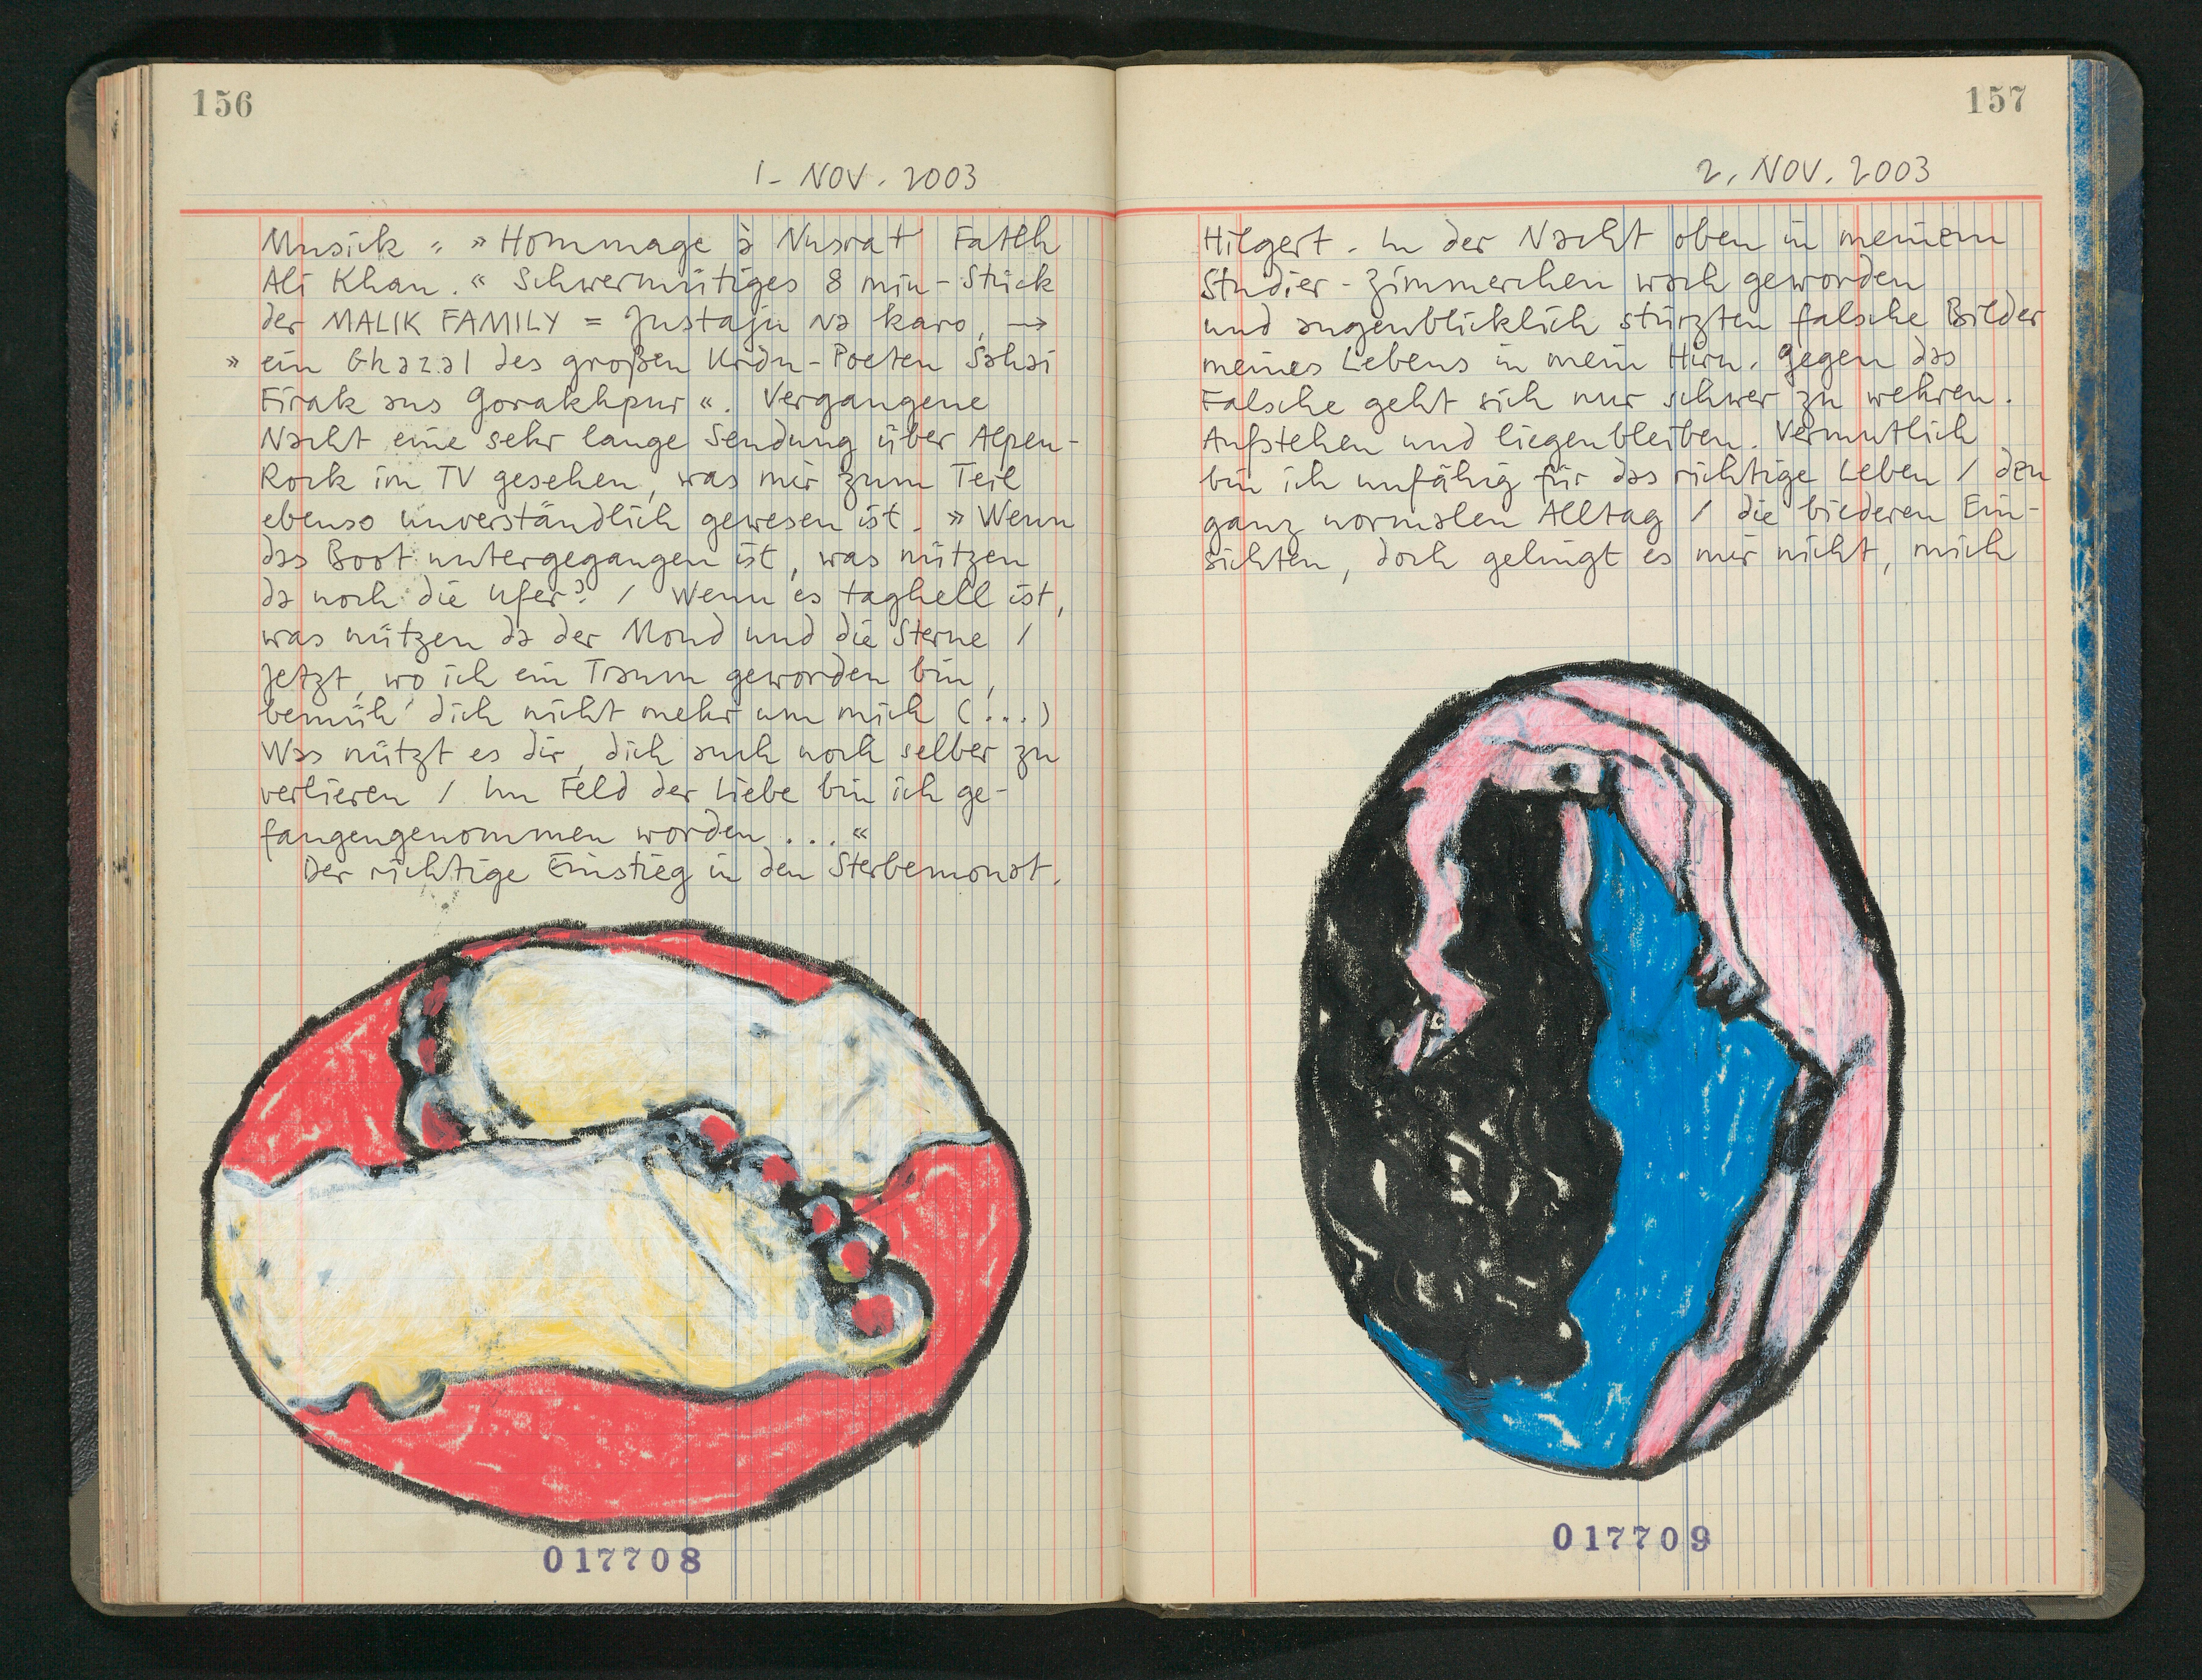 156
1. NOV. 2003
Musick „ » Hommage à Nusrat Fateh
Ali Khan. « Schwermütiges 8 min-Stück
der MALIK FAMILY = Justaju na karo, →
» ein Ghazal des großen Urdu-Poeten Sahai
Firak aus Gorakhpur «. Vergangene
Nacht eine sehr lange Sendung über Alpen-
Rock im TV gesehen, was mir zum Teil
ebenso unverständlich gewesen ist. » Wenn
das Boot untergegangen ist, was nützen
da noch die Ufer? / Wenn es taghell ist,
was nützen da der Mond und die Sterne /
Jetzt, wo ich ein Traum geworden bin,
bemüh' dich nicht mehr um mich (...)
Was nützt es dir, dich auch noch selber zu
verlieren / Im Feld der Liebe bin ich ge-
fangengenommen worden ... «
Der richtige Einstieg in den Sterbemonat.
017708
157
2. NOV. 2003
Hilgert. In der Nacht oben in meinem
Studier-Zimmerchen wach geworden
und augenblicklich stürzten falsche Bilder
meines Lebens in mein Hirn. Gegen das
Falsche geht sich nur schwer zu wehren.
Aufstehen und liegenbleiben. Vermutlich
bin ich unfähig für das richtige Leben / den
ganz normalen Alltag / die biederen Ein-
sichten, doch gelingt es mir nicht, mich
017709